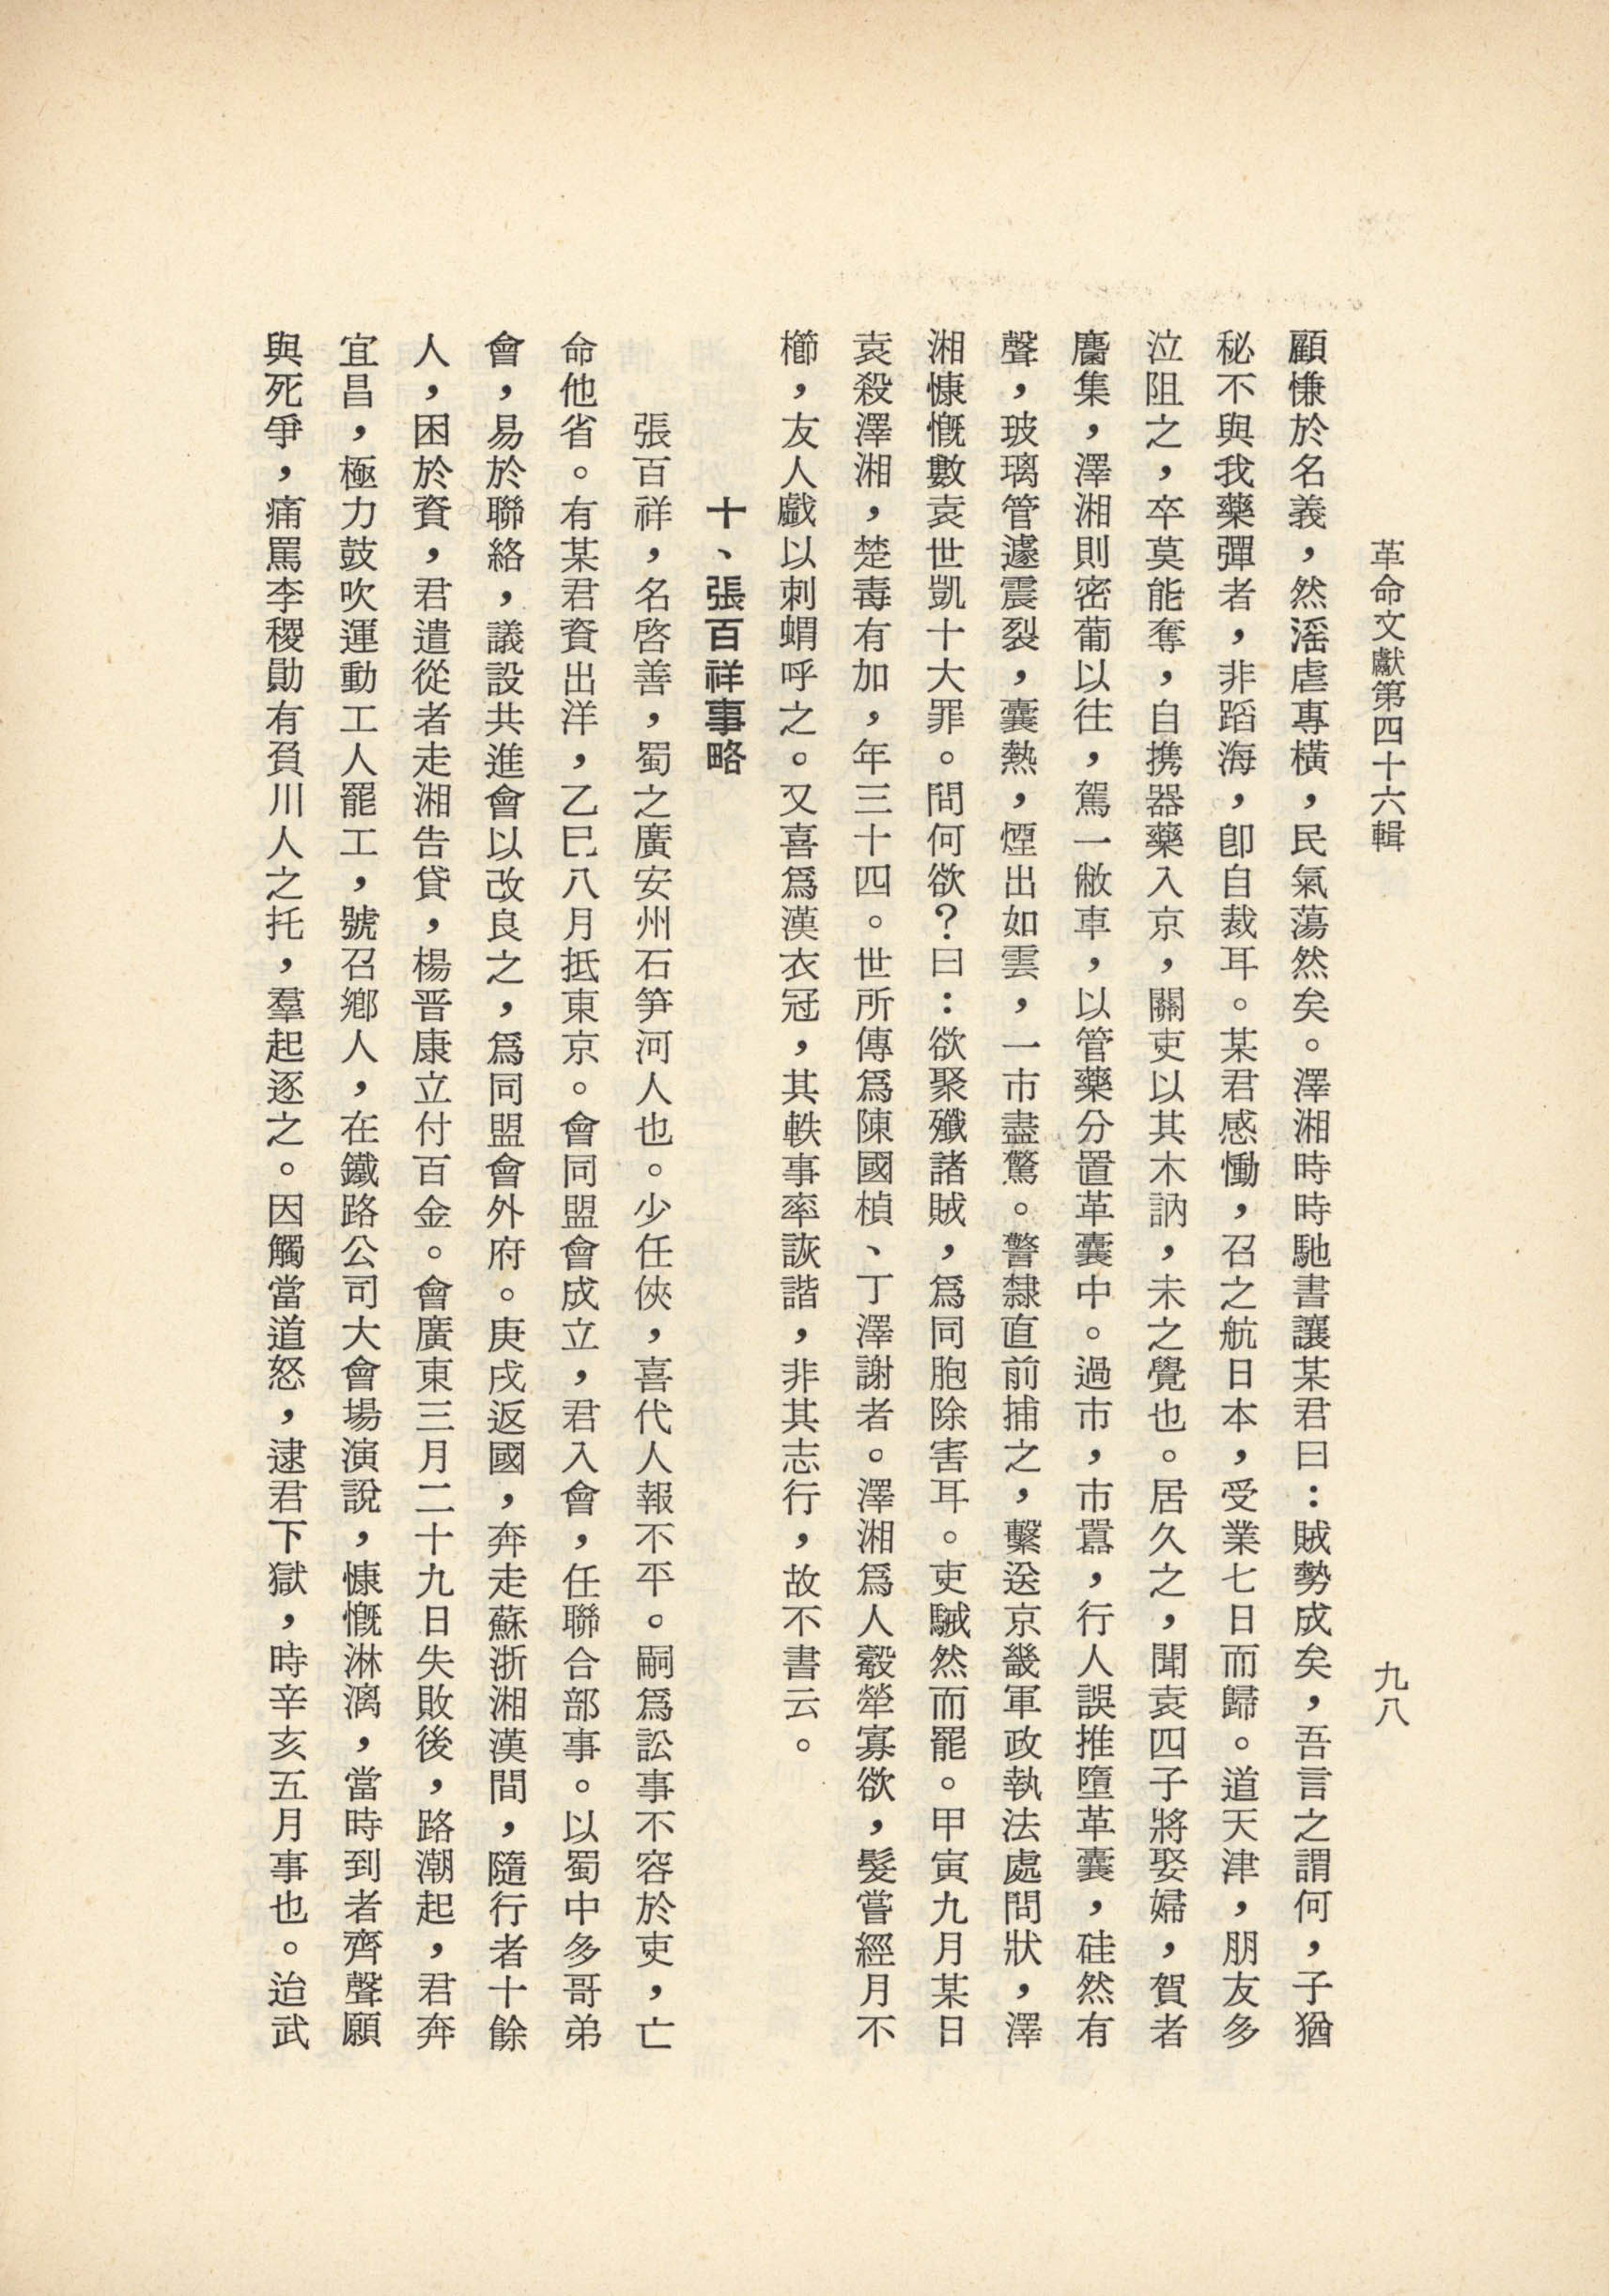 革命文獻第四十六輯
九八
顧慊於名義，然滛虐專橫，民氣蕩然矣。澤湘時時馳書讓某君曰：賊勢成矣，吾言之謂何，子猶
秘不與我藥彈者，非蹈海，卽自裁耳。某君感慟，召之航日本，受業七日而歸。道天津，朋友多
泣阻之，卒莫能奪，自携器藥入京，關吏以其木訥，未之覺也。居久之，聞袁四子將娶婦，賀者
麕集，澤湘則密葡以往，駕一敝車，以管藥分置革囊中。過市，市囂，行人誤推墮革囊，硅然有
聲，玻璃管遽震裂，囊熱，煙出如雲，一市盡驚。警隸直前捕之，繫送京畿軍政執法處問狀，澤
湘慷慨數袁世凱十大罪。問何欲？曰：欲聚殲諸賊，爲同胞除害耳。吏駴然而罷。甲寅九月某日
袁殺澤湘，楚毒有加，年三十四。世所傳爲陳國楨、丁澤謝者。澤湘爲人觳犖寡欲，髮嘗經月不
櫛，友人戲以刺蝟呼之。又喜爲漢衣冠，其軼事率詼諧，非其志行，故不書云。
十、張百祥事略
張百祥，名啓善，蜀之廣安州石笋河人也。少任俠，喜代人報不平。嗣爲訟事不容於吏，亡
命他省。有某君資出洋，乙巳八月抵東京。會同盟會成立，君入會，任聯合部事。以蜀中多哥弟
會，易於聯絡，議設共進會以改良之，爲同盟會外府。庚戌返國，奔走蘇浙湘漢間，隨行者十餘
人，困於資，君遣從者走湘告貸，楊晋康立付百金。會廣東三月二十九日失敗後，路潮起，君奔
宜昌，極力鼓吹運動工人罷工，號召鄉人，在鐵路公司大會場演說，慷慨淋漓，當時到者齊聲願
與死爭，痛罵李稷勛有負川人之托，羣起逐之。因觸當道怒，逮君下獄，時辛亥五月事也。迨武